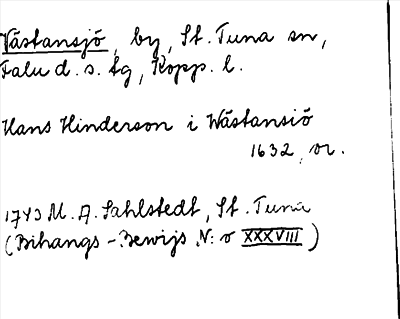 Västansjö, by, St. Tuna sn,
Falu d. s. tg, Kopp. l.
Hans Hinderson i Wästansiö
1632, or.
1743 M. A. Sahlstedt, St. Tuna
(Bihangs-Bewijs N:o XXXVIII)